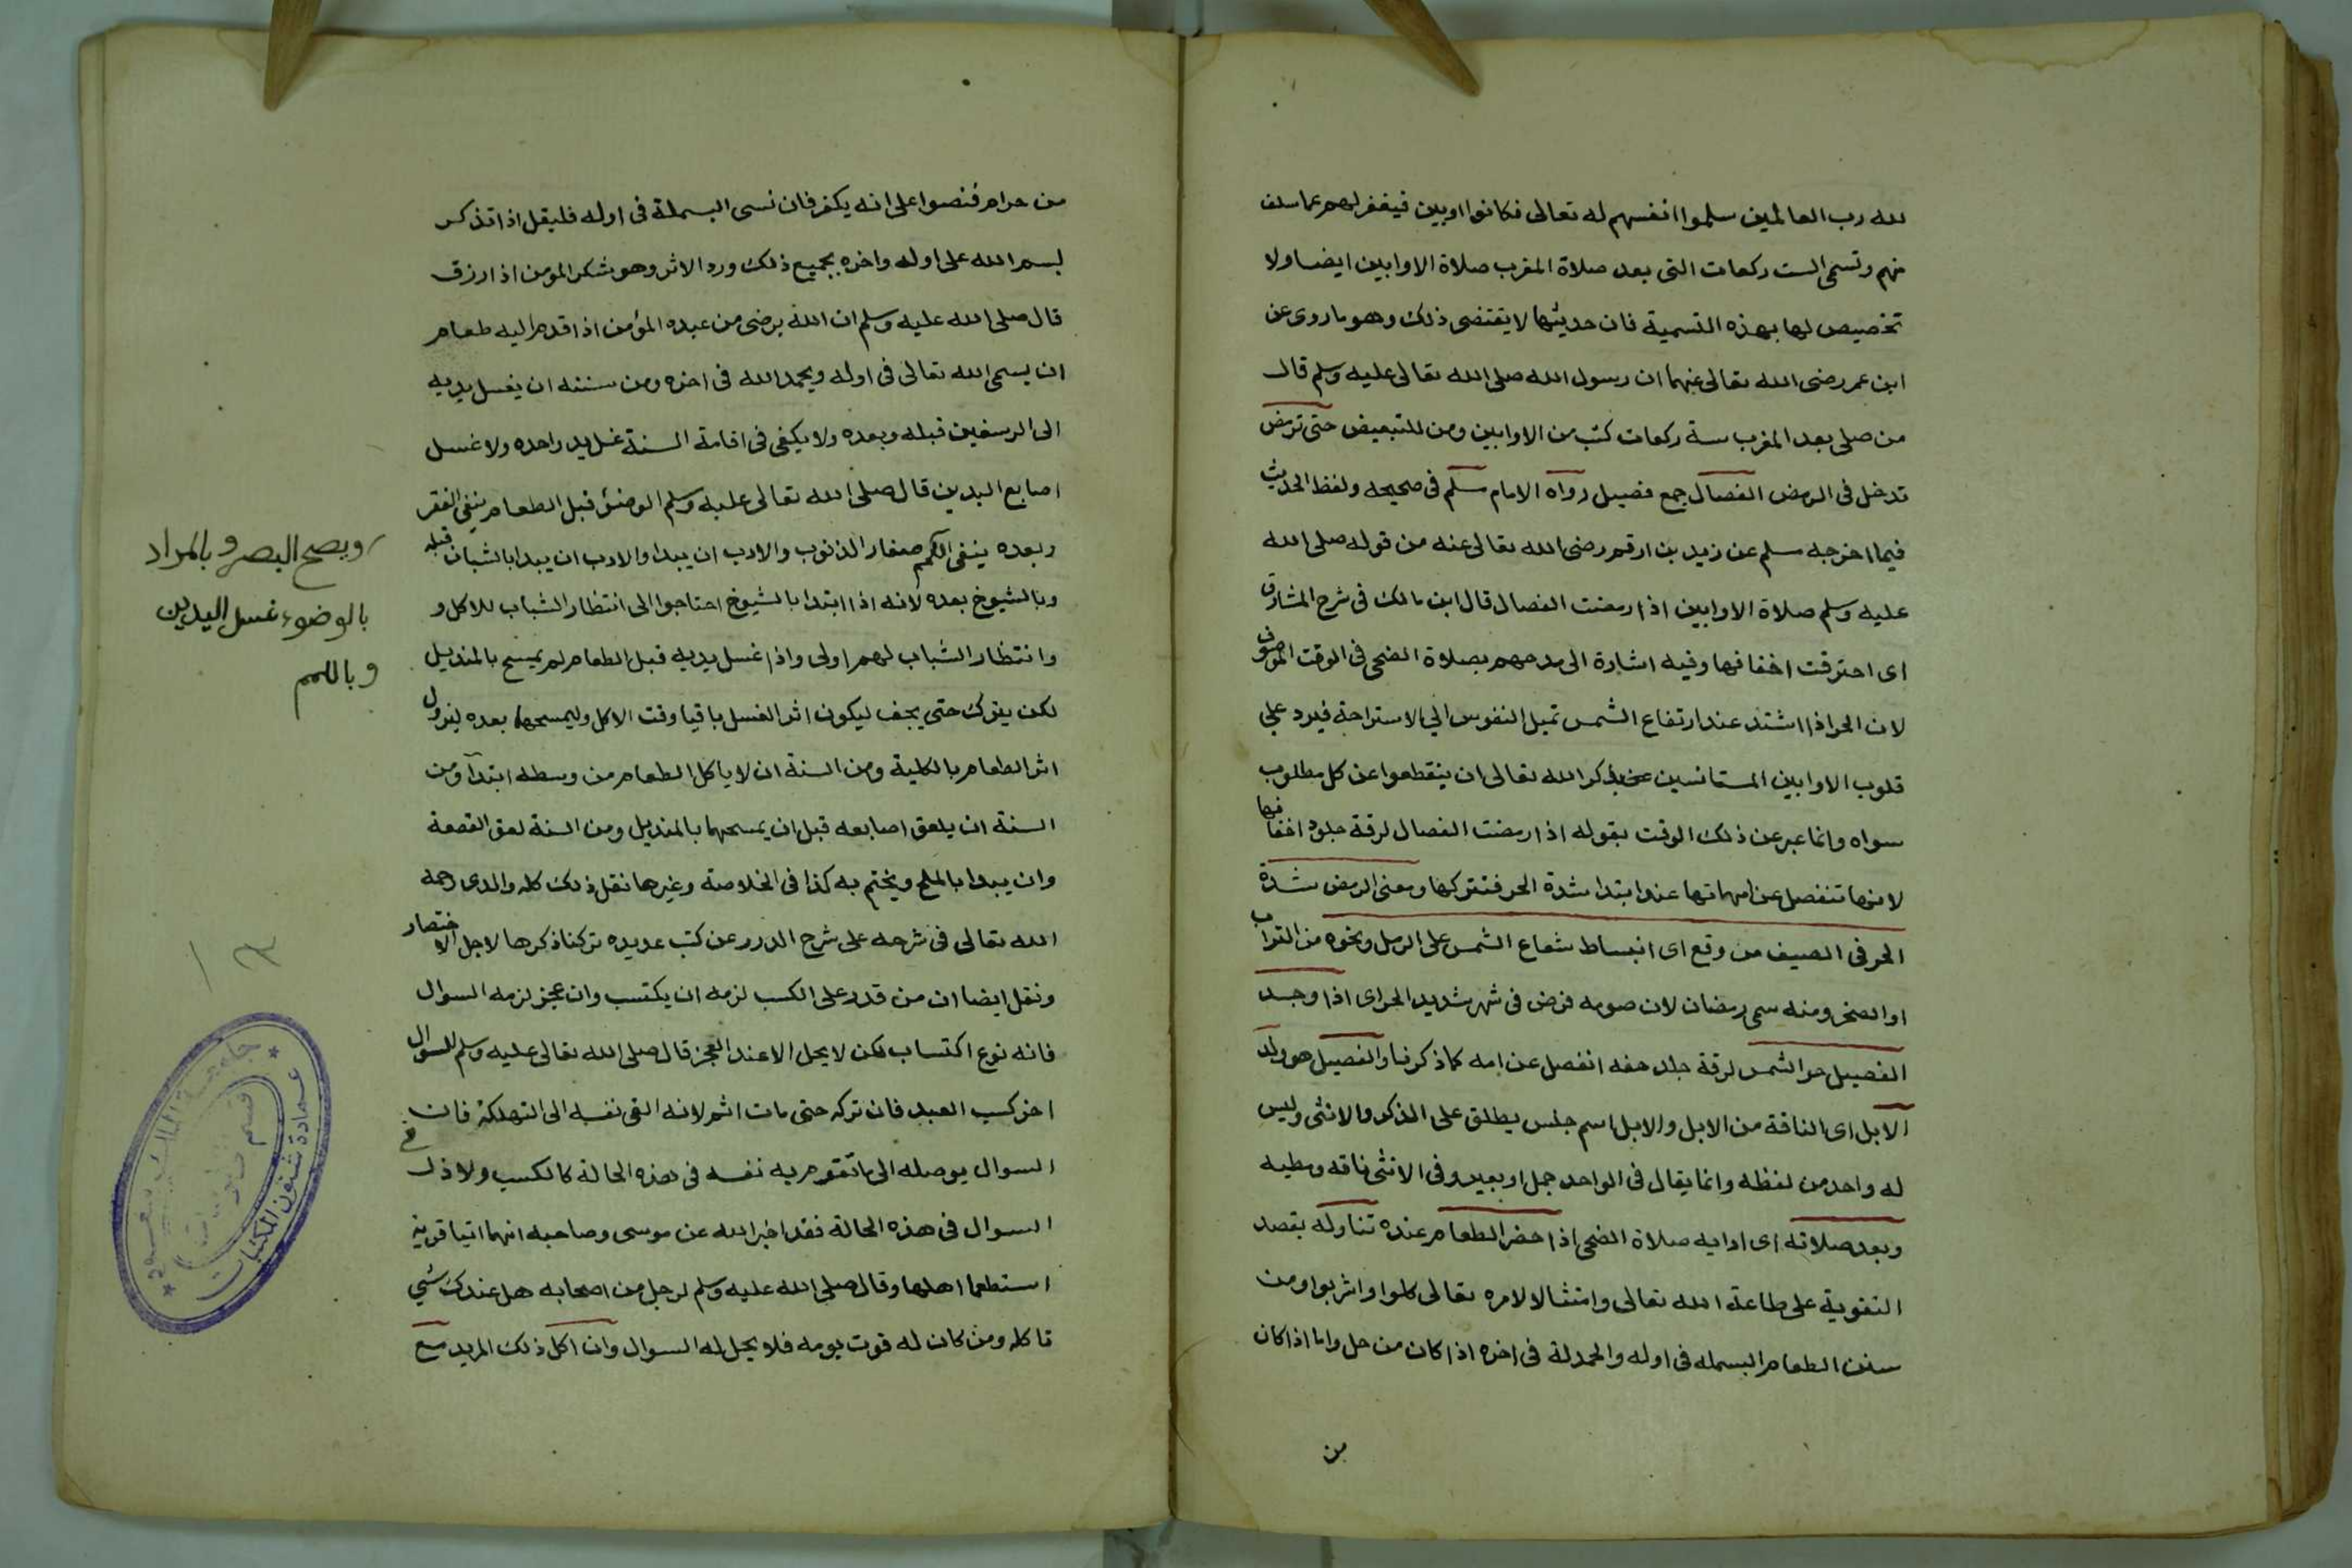 لله رب العالمين سلموا انفسهم له تعالى فكانوا اوبين فيغفر لهم عما سلف
منهم وتسمى الست ركعات التى بعد صلاة المغرب صلاة الاوابين ايضا ولا
تخصيص لها بهذه التسمية فان حديثها لا يقتضى ذلك وهو ما روى عن
ابن عمر رضى الله تعالى عنهما ان رسول الله صلى الله تعالى عليه وسلم قال
من صلى بعد المغرب ستة ركعات كتب من الاوابين ومن للتبعيض حتى ترمض
تدخل فى الرمض الفصال جمع فصيل رواه الامام مسلم فى صحيحه ولفظ الحديث
فيما اخرجه مسلم عن زيد بن ارقم رضى الله تعالى عنه من قوله صلى الله
عليه وسلم صلاة الاوابين اذا رمضت الفصال قال ابن مالك فى شرح المشارق
اى احترقت اخفافها وفيه اشارة الى مدحهم بصلاة الضحى فى الوقت الموصوف
لان الحر اذا اشتد عند ارتفاع الشمس تميل النفوس الي الاستراحة فيرد علي
قلوب الاوابين المستانسين بذكر الله تعالى ان ينقطعوا عن كل مطلوب
سواه وانما عبر عن ذلك الوقت بقوله اذا رمضت الفصال لرقة جلود اخفافها
لانها تنفصل عن امهاتها عند ابتدا شدة الحر فتتركها ومعنى الرمض شدة
الحر فى الصيف من وقع اى انبساط شعاع الشمس على الرمل ونحوه من التراب
او الصخر ومنه سمى رمضان لان صومه فرض فى شهر شديد الحر اى اذا وجد
الفصيل حر الشمس لرقة جلد خفه انفصل عن امه كما ذكرنا والفصيل هو ولد
الابل اى الناقة من الابل والابل اسم جنس يطلق على الذكر والانثى وليس
له واحد من لفظه وانما يقال فى الواحد جمل او بعير وفى الانثى ناقه ومطيه
وبعد صلاته اى ادايه صلاة الضحى اذا حضر الطعام عنده تناوله بقصد
التقوية على طاعة الله تعالى وامتثالا لامره تعالى كلوا واشربوا ومن
سنن الطعام البسمله فى اوله والحمدلة فى اخره اذا كان من حل واما اذا كان
من
من حرام فنصوا على انه يكفر فان نسى البسملة فى اوله فليقل اذا تذكر
بسم الله على اوله واخره بجميع ذلك ورد الاثر وهو شكر المؤمن اذا رزق
قال صلى الله عليه وسلم ان الله يرضى من عبده المؤمن اذا قدم اليه طعام
ان يسمى الله تعالى فى اوله ويحمد الله فى اخره ومن سننه ان يغسل يديه
الى الرسغين قبله وبعده ولا يكفى فى اقامة السنة غسل يد واحده ولا غسل
اصابع اليدين قال صلى الله تعالى عليه وسلم الوضئ قبل الطعام ينفى الفقر
وبعده ينفى اللمم صغار الذنوب والادب ان يبدا والادب ان يبدا بالشبان قبله
وبالشيوخ بعده لانه اذا ابتدا بالشيوخ احتاجوا الى انتظار الشباب للاكل و
وانتظار الشباب لهم اولى واذا غسل يديه قبل الطعام لم يمسح بالمنديل
لكن يترك حتى يجف ليكون اثر الغسل باقيا وقت الاكل وليمسحها بعده ليزول
اثر الطعام بالكلية ومن السنة ان لا ياكل الطعام من وسطه ابتدآ ومن
السنة ان يلعق اصابعه قبل ان يمسحهما بالمنديل ومن السنة لعق القصعة
وان يبدا بالملح ويختم به كذا فى الخلاصة وغيرها نقل ذلك كله والدى رحمه
الله تعالى فى شرحه على شرح الدرر عن كتب عديده تركنا ذكرها لاجل الاختصار
ونقل ايضا ان من قدر على الكسب لزمه ان يكتسب وان عجز لزمه السوال
فانه نوع اكتساب لكن لا يحل الا عند العجز قال صلى الله تعالى عليه وسلم السوال
اخر كسب العبد فان تركه حتى مات اثم لانه القى نفسه الى التهلكة فان
السوال يوصله الى ما تقوم به نفسه فى هذه الحالة كالكسب ولا ذل فى
السوال فى هذه الحالة فقد اخبر الله عن موسى وصاحبه انهما اتيا قرية
استطعما اهلها وقال صلى الله عليه وسلم لرجل من اصحابه هل عندك شي
تاكله ومن كان له قوت يومه فلا يحل له السوال وان اكل ذلك المريد مع
ويصح البصر والمراد
بالوضوء غسل اليدين
وباللمم
١٣
جامعة الملك سعود
عمادة شئون المكتبات
قسم